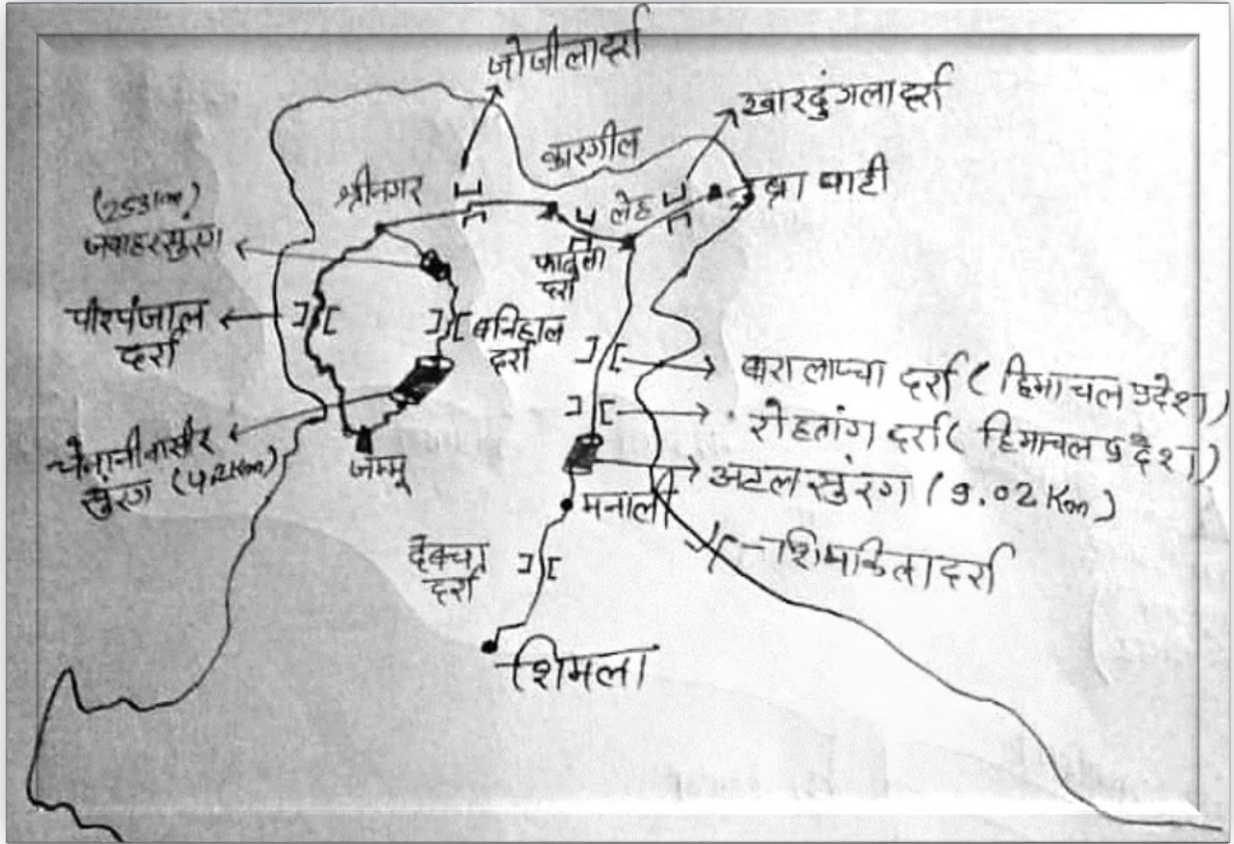 जोजीला दर्रा
खारदुंगला दर्रा
कारगील
श्रीनगर
लेह
नुब्रा घाटी
जवाहर सुरंग
फातुला
दर्रा
पीरपंजाल
दर्रा
बनिहाल
दर्रा
बारालाप्चा दर्रा ( हिमाचल प्रदेश )
रोहतांग दर्रा ( हिमाचल प्रदेश )
चेनानी नासीर
सुंरग (9.2Km)
जम्मू
अटल सुंरग ( 9.02 Km )
मनाली
दर्रा
शिपकिला दर्रा
शिमला